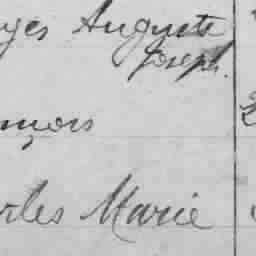 ges Auguste
Joseph.
nçois
rles Marie